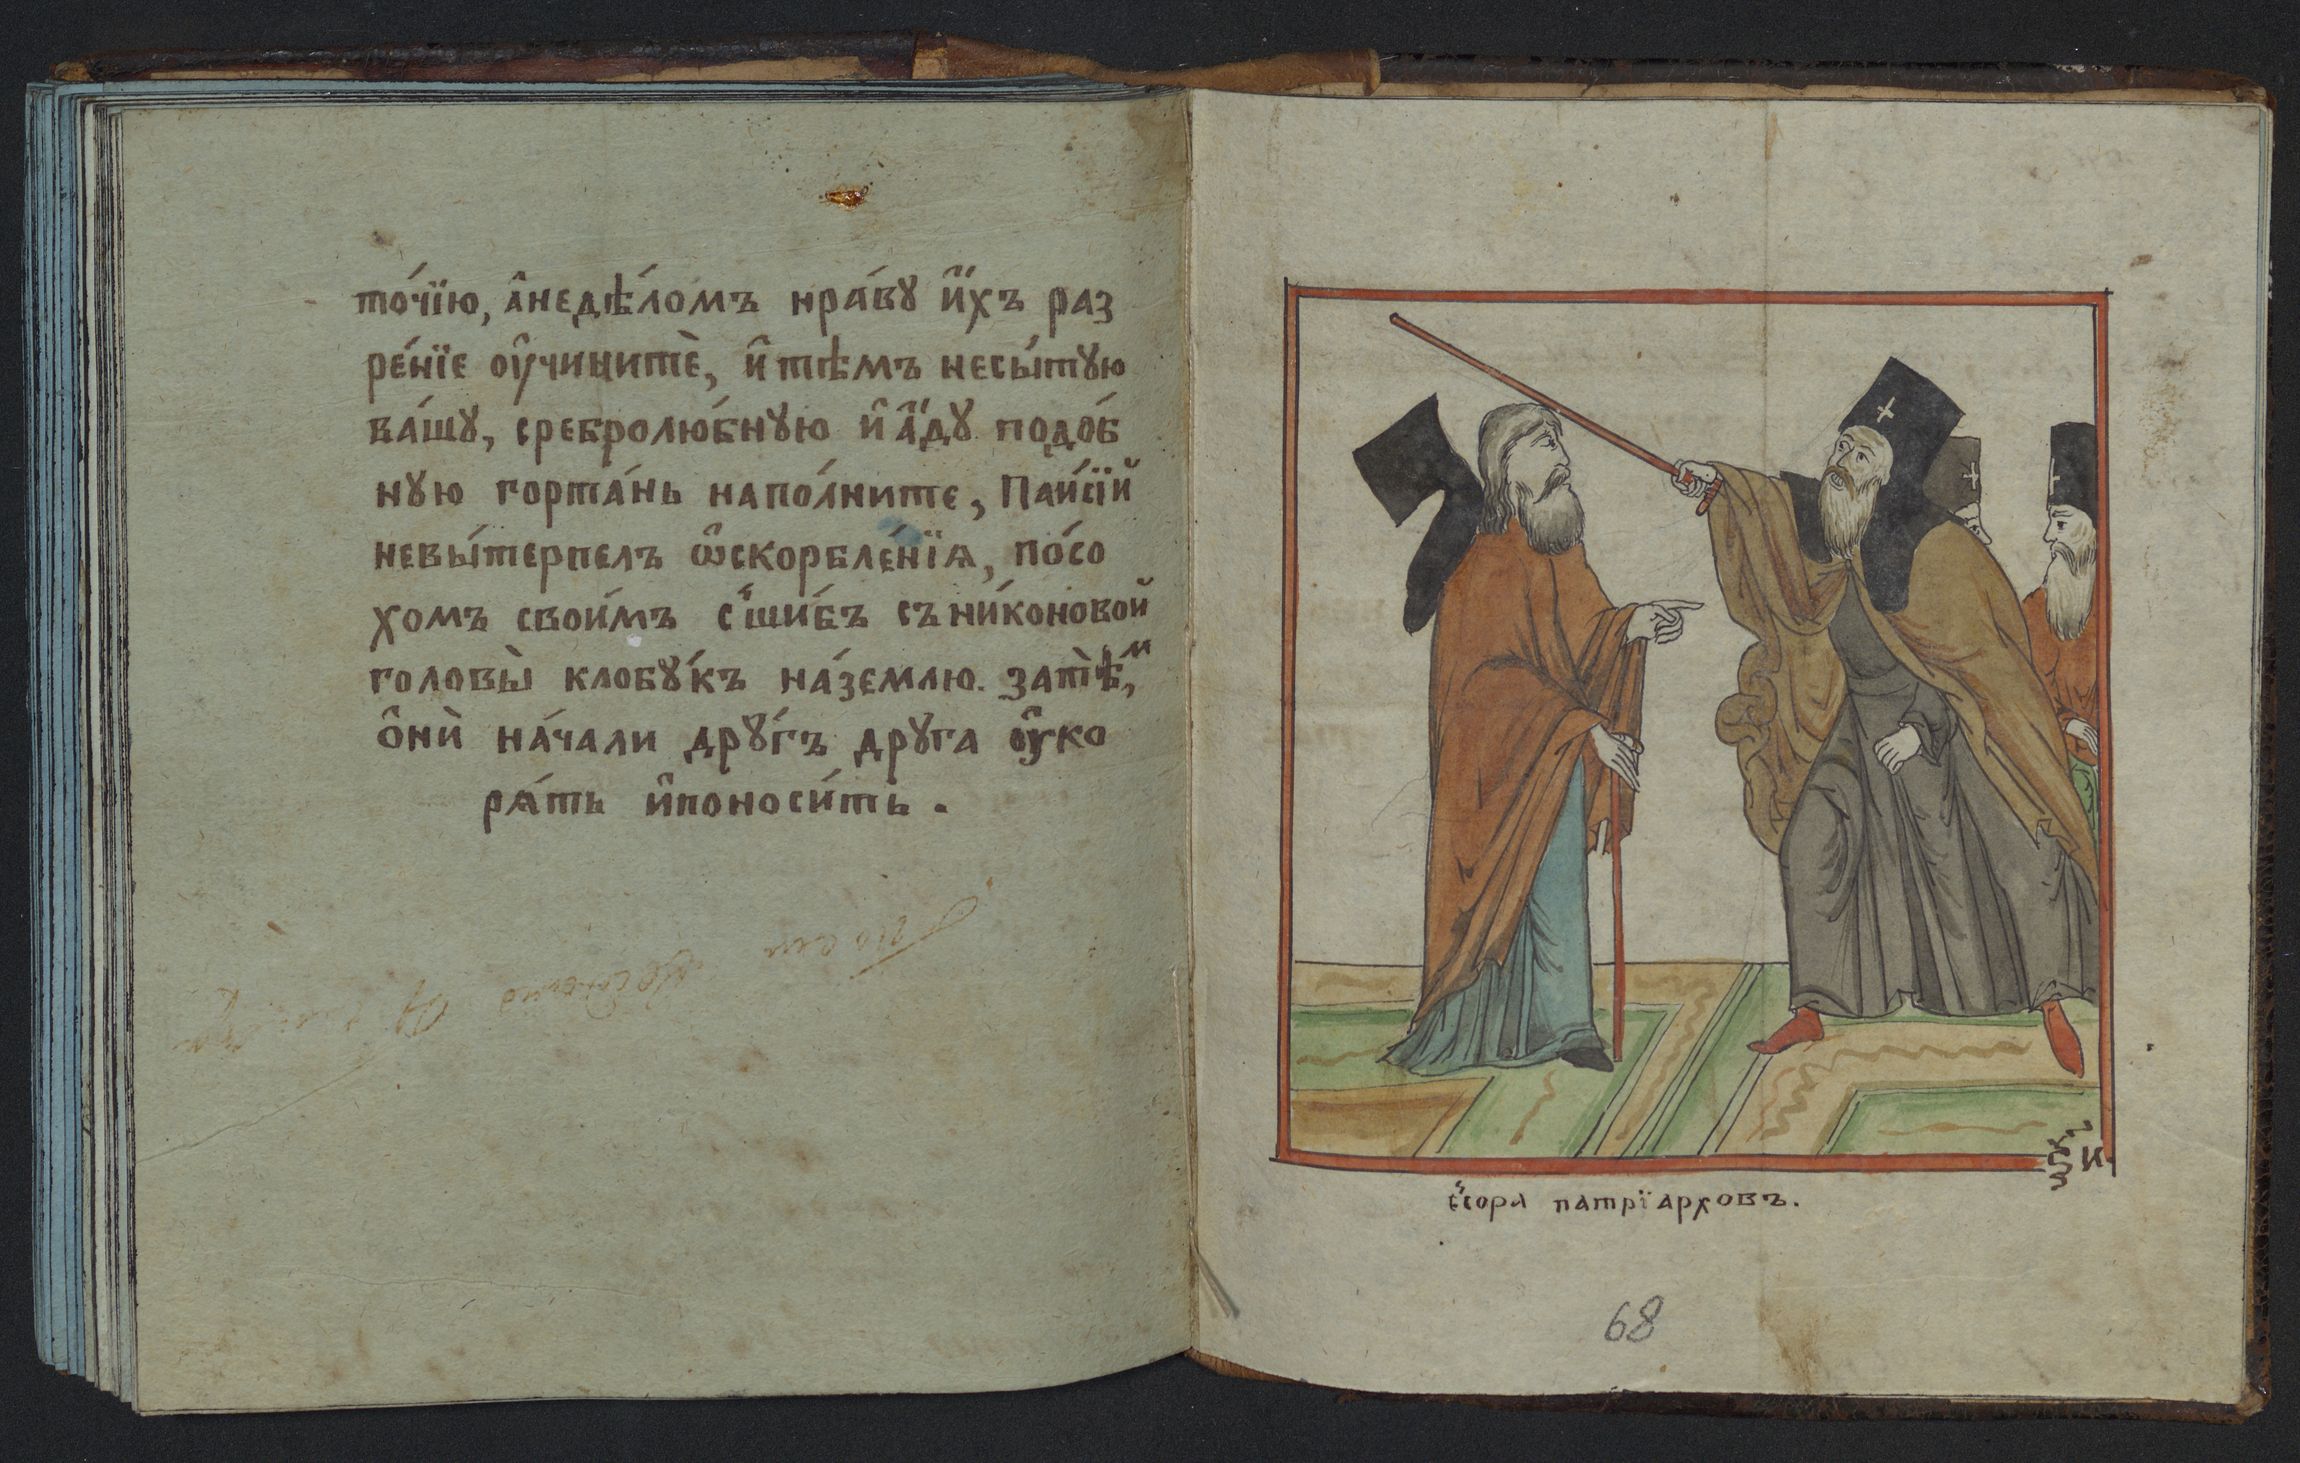 то́чїю, а҆недѣ́ломъ нра́ву и҆́хъ раз
ре́нїе ѹ҆чинитѐ, и҆тѣмъ несы́тꙋю
ва́шꙋ, сребролю́бнꙋю и҆ а҆́дꙋ подо́б
нꙋю горта́нь напо́лните, Паи́сїй
невы́терпелъ ѡ҆скорбле́нїѧ, по́со
хомъ свои́мъ с̾ши́бъ съни́коновой
головы̀ клобꙋ́къ на́землю. затѣ́м,
ѻ҆нѝ на́чали дрꙋ́гъ дрꙋга ѹ҆ко
рѧ́ть и҆поноси́ть.
с̾сора патрїарховъ.
68